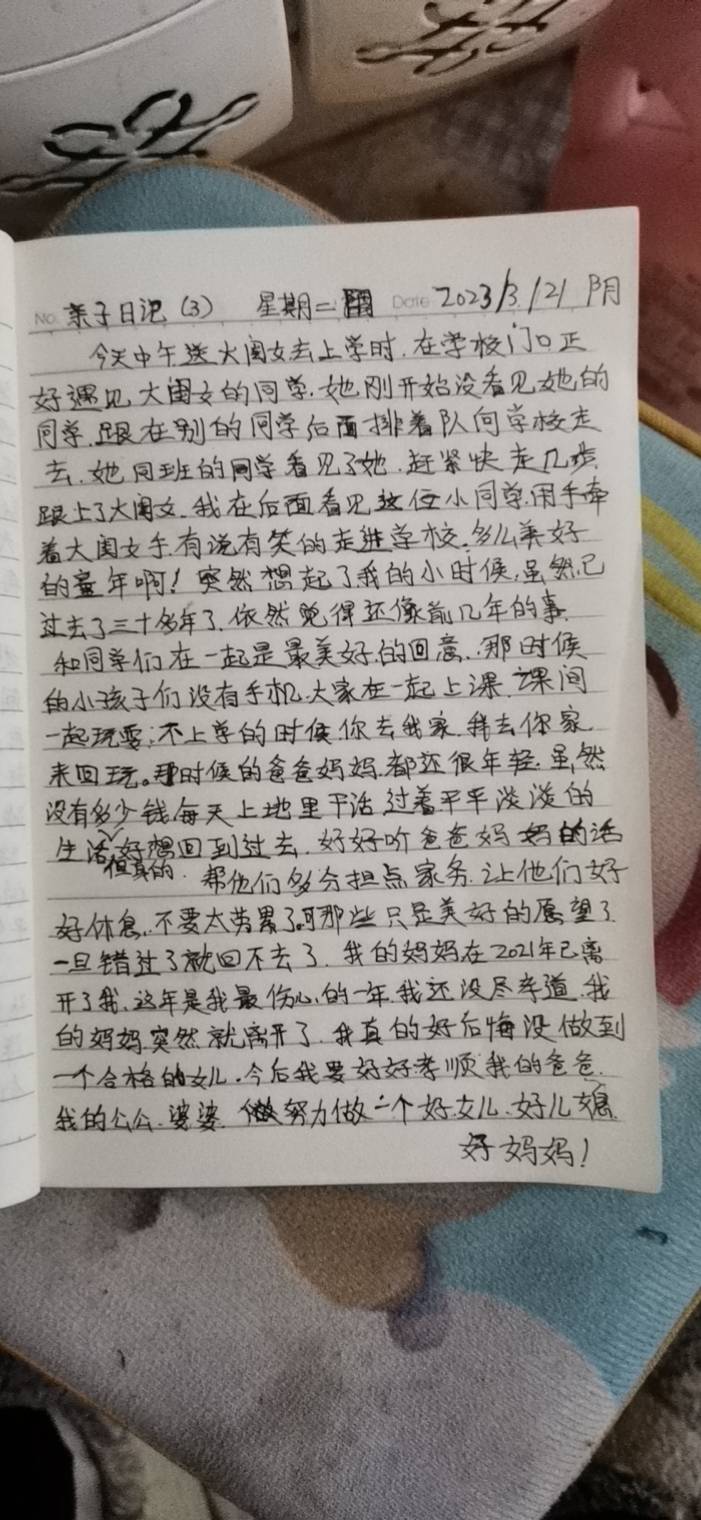 No. 亲子日记（3） 星期二 Date 2023/3/21 阴
今天中午送大闺女去上学时.在学校门口正
好遇见大闺女的同学.她刚开始没看见她的
同学.跟在别的同学后面排着队向学校走
去.她同班的同学看见了她.赶紧快走几步.
跟上了大闺女.我在后面看见这位小同学.用手牵
着大闺女手.有说有笑的走进学校.多么美好
的童年啊！突然想起了我的小时候.虽然已
过去了三十多年了.依然觉得还像前几年的事.
和同学们在一起是最美好的回意..那时候
的小孩子们没有手机.大家在一起上课.课间
一起玩耍;不上学的时候.你去我家.我去你家.
来回玩。那时候的爸爸妈妈.都还很年轻.虽然
没有多少钱.每天上地里干活.过着平平淡淡的
生活.但真的好想回到过去.好好听爸爸妈妈的话
帮他们多分担点家务.让他们好
好休息.不要太劳累了.可那些只是美好的愿望了
一旦错过了就回不去了.我的妈妈在2021年已离
开了我.这年是我最伤心的一年.我还没尽孝道.我
的妈妈突然就离开了.我真的好后悔没做到
一个合格的女儿.今后我要好好孝顺我的爸爸.
我的公公.婆婆.努力做一个好女儿.好儿媳.
好妈妈！